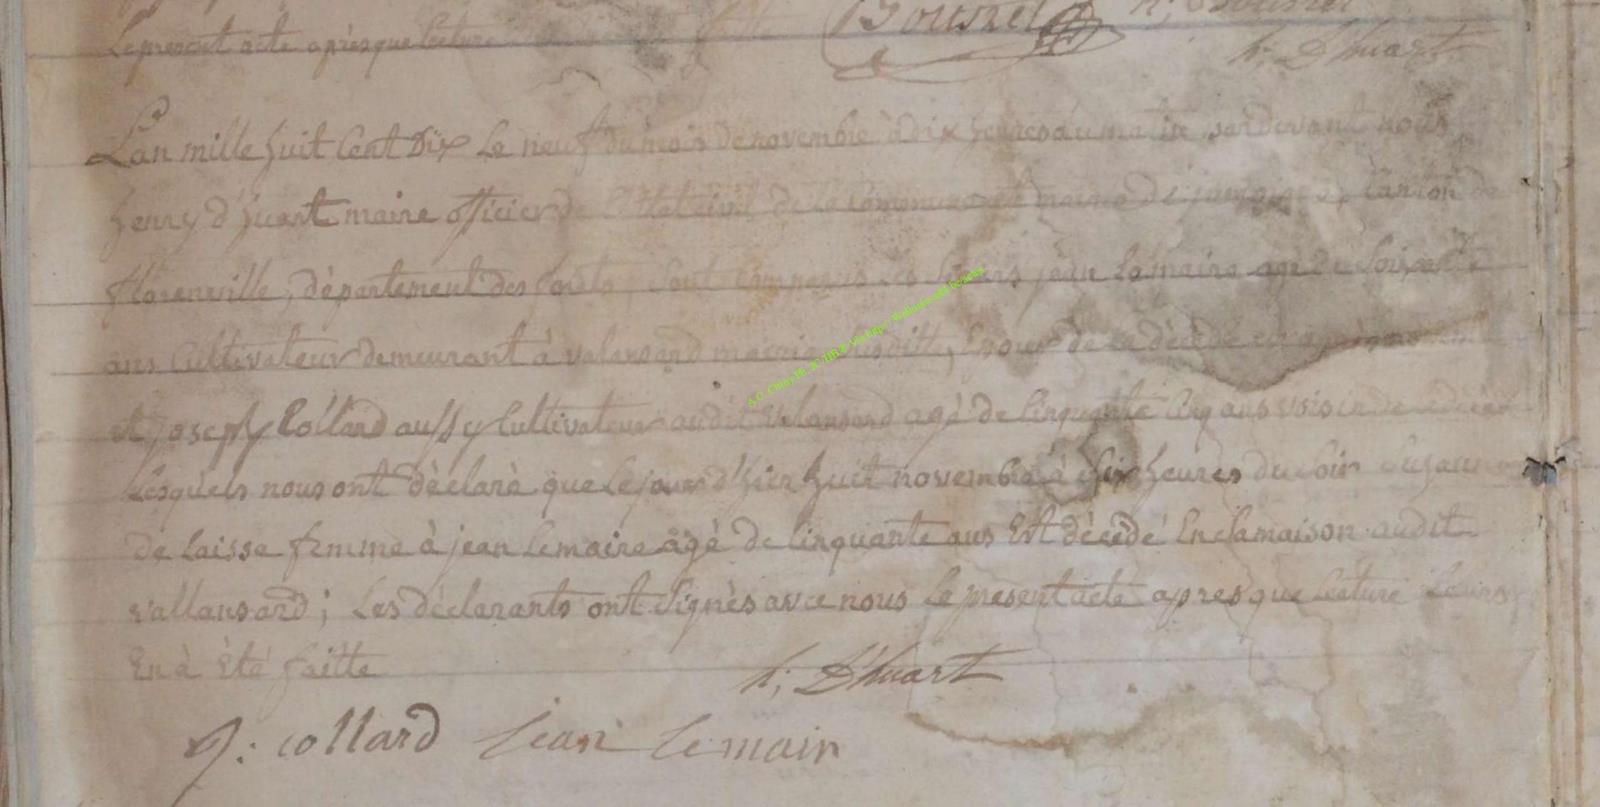 Le present acte apresque lecture
Bourret
h; D'huart
L'an mille huit Cent Dix Le neuf du mois de novembre à dix heures du matin par devant nous
henry d'huart maire officier de l'Etat civil de la Commune et mairie de jamoigne, Canton de
florenville, département des forêts, sont comparus les sieurs jean Lemaire agé de soixante
ans Cultivateur demeurant à valansard mairie susditte, Epoux de la décédé
et joseph Collard aussy Cultivateur audit valansard agé de Cinquante Cinq ans voisin de
Lesquels nous ont déclaré que Le jour d'hier huit novembre à heures du soir
de Laisse femme à jean Lemaire âgé de Cinquante ans Est décédé En la maison audit
vallansard; Les déclarants ont signès avec nous Le present acte apres que Lecture
En à Eté faitte
h; D'huart
J: collard jean Lemair